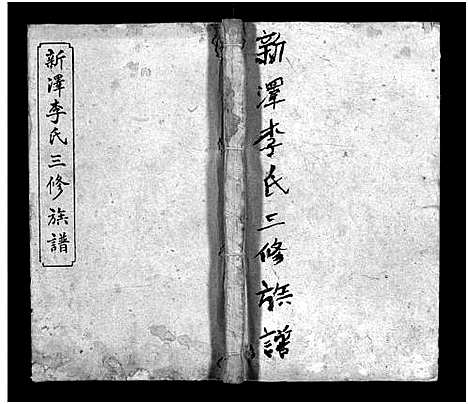 新澤李氏三修族譜
新澤李氏三修族譜